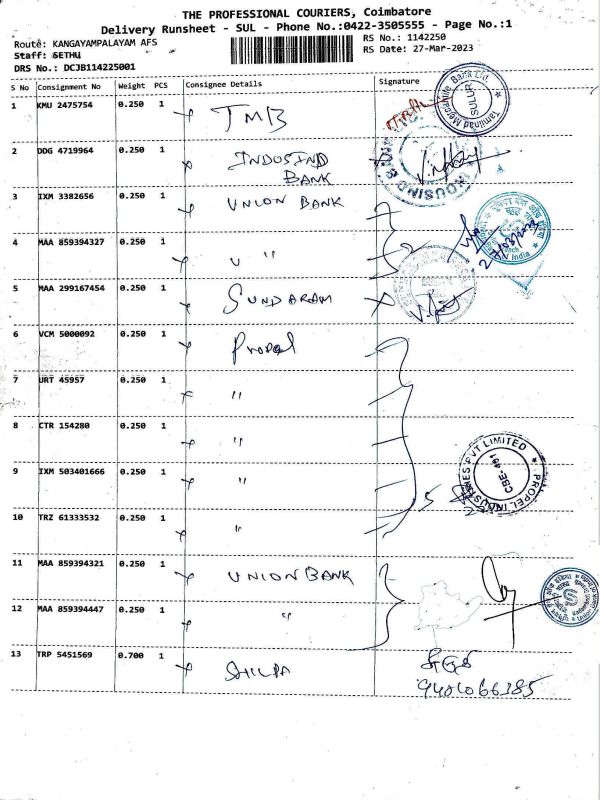 THE PROFESSIONAL COURIERS, Coimbatore
Delivery Runsheet - SUL - Phone No.:0422-3505555 - Page No.:1
Route: KANGAYAMPALAYAM AFS RS No.: 1142250
Staff: SETHU RS Date: 27-Mar-2023
DRS No.: DCJB114225001
S No Consignment No Weight PCS Consignee Details Signature
1 KMU 2475754 0.250 1 TMB
Tamilnad Mercantile Bank Ltd
SULUR
2 DDG 4719964 0.250 1 INDUSIND BANK
INDUSIND B
3 IXM 3382656 0.250 1 UNION BANK
4 MAA 859394327 0.250 1 U "
5 MAA 299167454 0.250 1 SUNDARAM
6 VCM 5000092 0.250 1 Propel
7 URT 45957 0.250 1 "
8 CTR 154280 0.250 1 "
9 IXM 503401666 0.250 1 "
PROPEL INDUSTRIES PVT LIMITED
CBE-401
10 TRZ 61333532 0.250 1 "
5
11 MAA 859394321 0.250 1 UNION BANK
12 MAA 859394447 0.250 1 "
S
13 TRP 5451569 0.700 1 SHILPA
9401066385